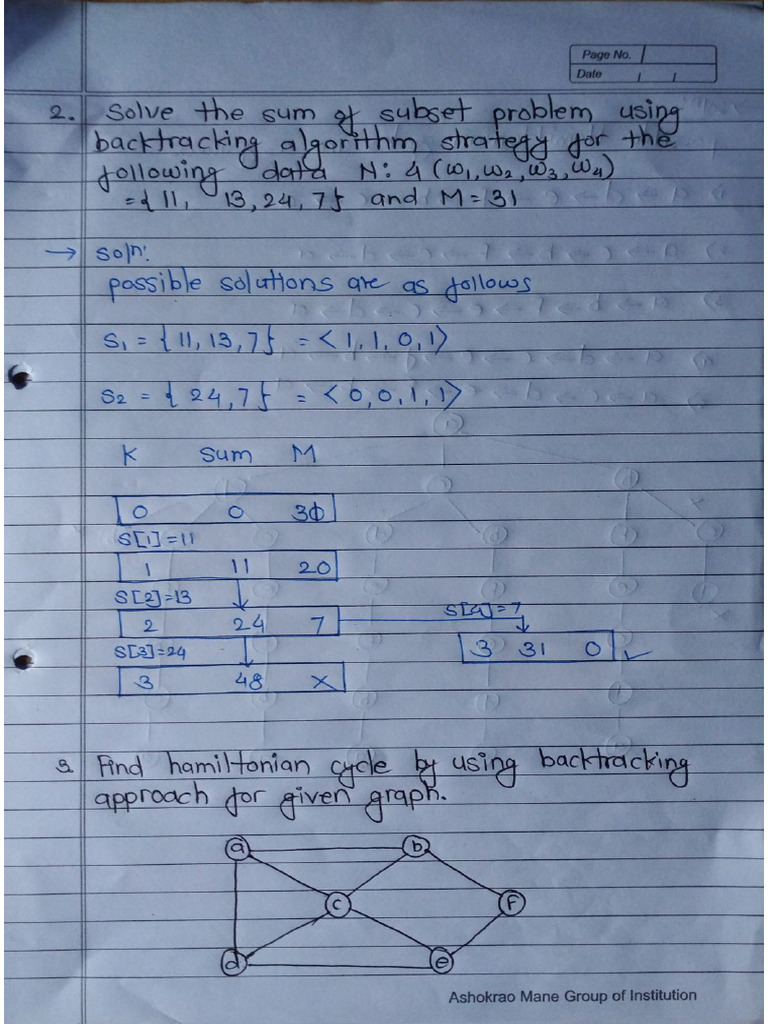 Page No.
Date / /
2. Solve the sum of subset problem using
backtracking algorithm strategy for the
following data N: 4 (ω1, ω2, ω3, ω4)
= { 11, 13, 24, 7 } and M = 31
→ Soln:
possible solutions are as follows
S1 = { 11, 13, 7 } = < 1, 1, 0, 1 >
S2 = { 24, 7 } = < 0, 0, 1, 1 >
K Sum M
0 0 31
S[1]=11
1 11 20
S[2]=13 S[4]=7
2 24 7
3 31 0 ✓
S[3]=24
3 48 X
Find hamiltonian cycle by using backtracking
approach for given graph.
a b
c f
d e
Ashokrao Mane Group of Institution